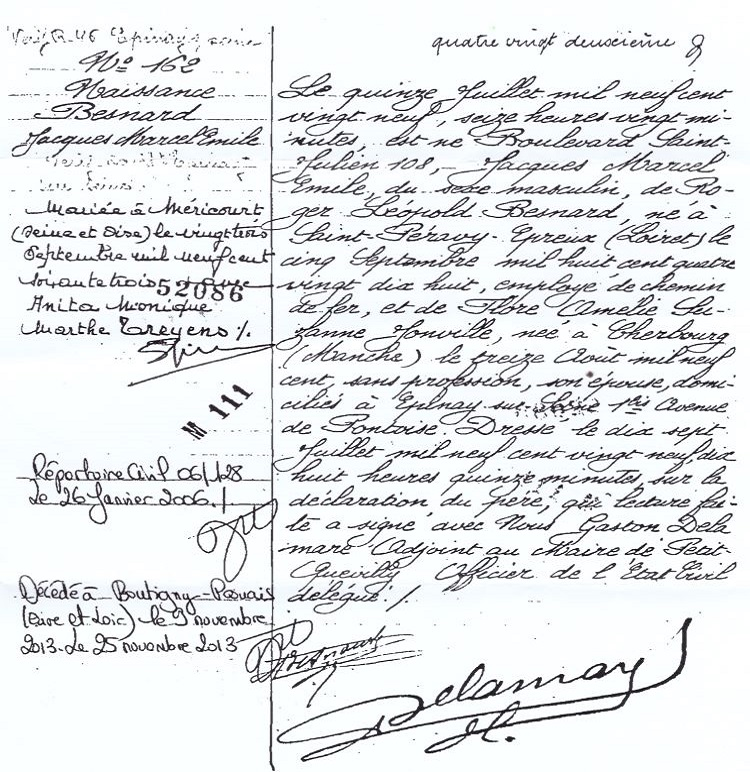 quatre vingt deuxième
Epinay s/ seine
No 162
Naissance
Besnard
Jacques Marcel Emile
Mariée à Méricourt
(Seine et Oise) le vingt trois
Septembre mil neuf cent
soixante trois
52086
Anita Monique
Marthe Treyens /.
M 111
Répertoire Civil 06/128
Le 26 Janvier 2006. /
Décédé à Boutigny-Prouais
(Eure et Loir) le 9 novembre
2013. Le 25 novembre 2013
Le quinze Juillet mil neuf cent
vingt neuf, seize heures vingt mi-
nutes, est né Boulevard Saint-
Julien 108, Jacques Marcel
Emile, du sexe masculin, de Ro-
ger Léopold Besnard, né à
Saint-Péravy-Epreux (Loiret) le
cinq Septembre mil huit cent quatre
vingt dix huit, employé de chemin
de fer, et de Flore Amélie Su-
zanne Jonville, née à Cherbourg
(Manche) le treize Août mil neuf
cent, sans profession, son épouse, domi-
ciliés à Epinay sur Seine 1bis Avenue
de Pontoise. Dressé le dix sept
Juillet mil neuf cent vingt neuf, dix
huit heures quinze minutes, sur la
déclaration du père, qui lecture fai-
te a signé avec Nous Gaston Dela
mare Adjoint au Maire de Petit-
Quevilly Officier de l'Etat Civil
délégué. /.
Delamare